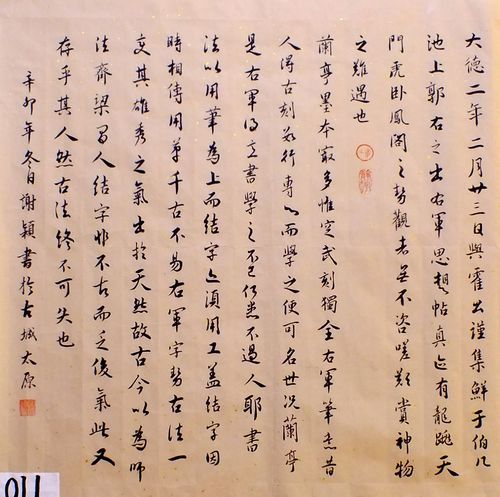 大德二年二月廿三日與霍公謹集鮮于伯几
池上郭右之出右軍思想帖真迹有龍跳天
門虎卧鳳閣之勢觀者無不咨嗟歎賞神物
之難遇也
蘭亭墨本最多惟定武刻獨全右軍筆意昔
人得古刻數行專心而學之便可名世况蘭亭
是右軍得意書學之不已何患不過人耶書
法以用筆為上而結字亦須用工蓋結字因
時相傳用筆千古不易右軍字勢古法一
變其雄秀之氣出於天然故古今以為師
法齊梁間人結字非不古而乏俊氣此又
存乎其人然古法終不可失也
辛卯年冬日謝穎書於古城太原
011